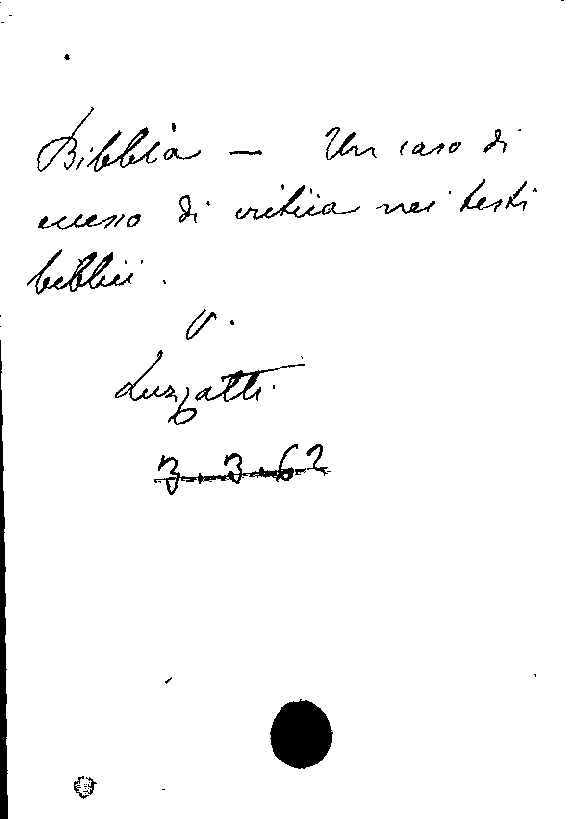 Bibbia - Un caso di
eccesso di critica nei testi
biblici.
v.
Luzzatti.
3.3.62